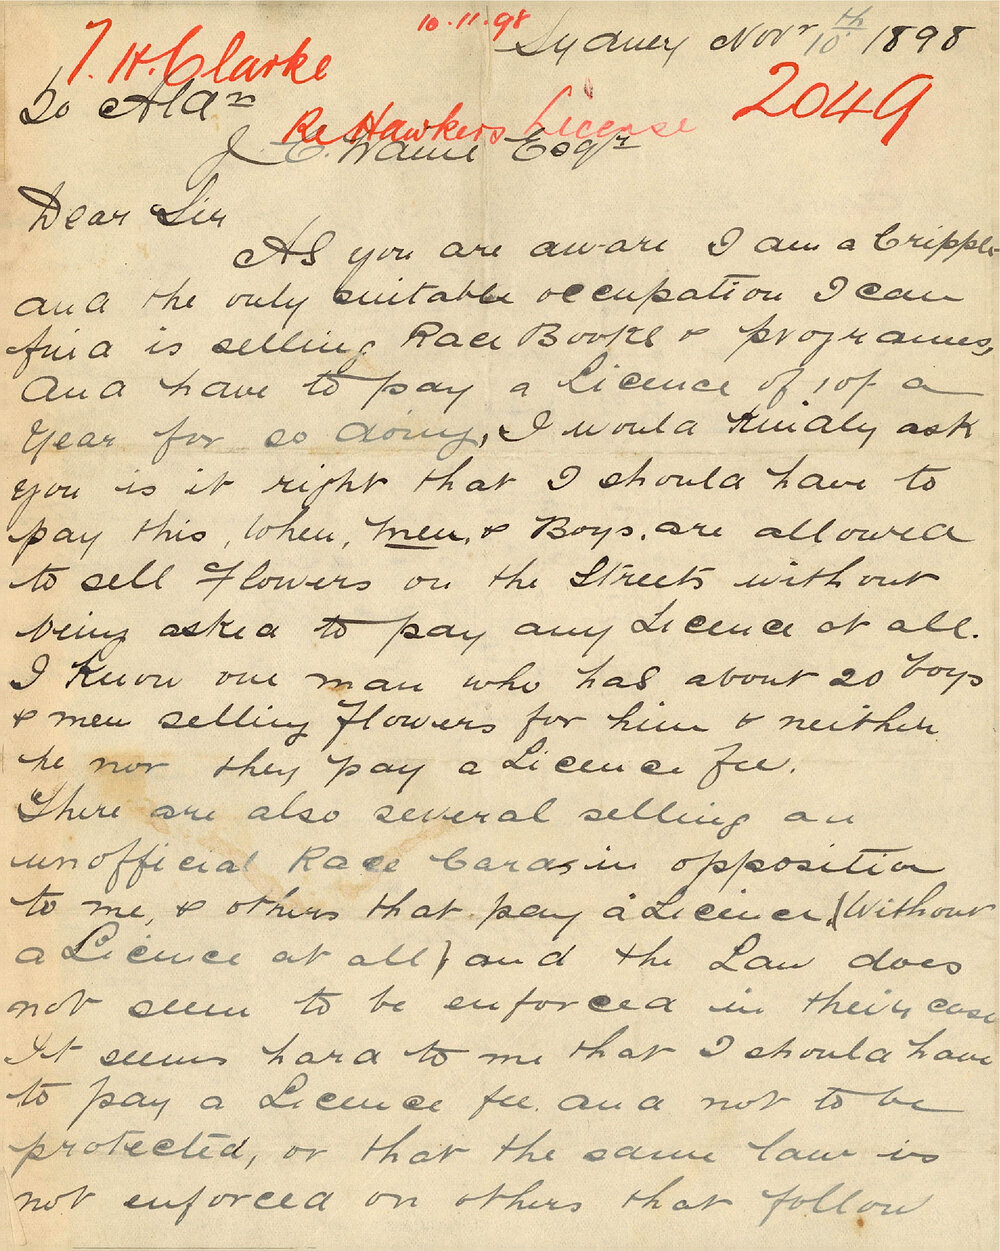 10.11.98
Sydney Novr 10th 1898
T. H. Clarke
2049
To Aldn
Re Hawkers License
J. C. Waine Esqr
Dear Sir
As you are aware I am a Cripple
and the only suitable occupation I can
find is selling Race Books & programes,
and have to pay a Licence of 10/- a
Year for so doing, I would Kindly ask
you is it right that I should have to
pay this, when, men, & Boys, are allowed
to sell Flowers on the Streets without
being asked to pay any Licence at all.
I Know one man who has about 20 boys
& men selling Flowers for him & neither
he nor they pay a Licence fee.
There are also several selling an
unofficial Race Cards in opposition
to me, & others that pay a Licence, (Without
a Licence at all) and the Law does
not seem to be enforced in their case
It seems hard to me that I should have
to pay a Licence fee and not to be
protected, or that the same law is
not enforced on others that follow